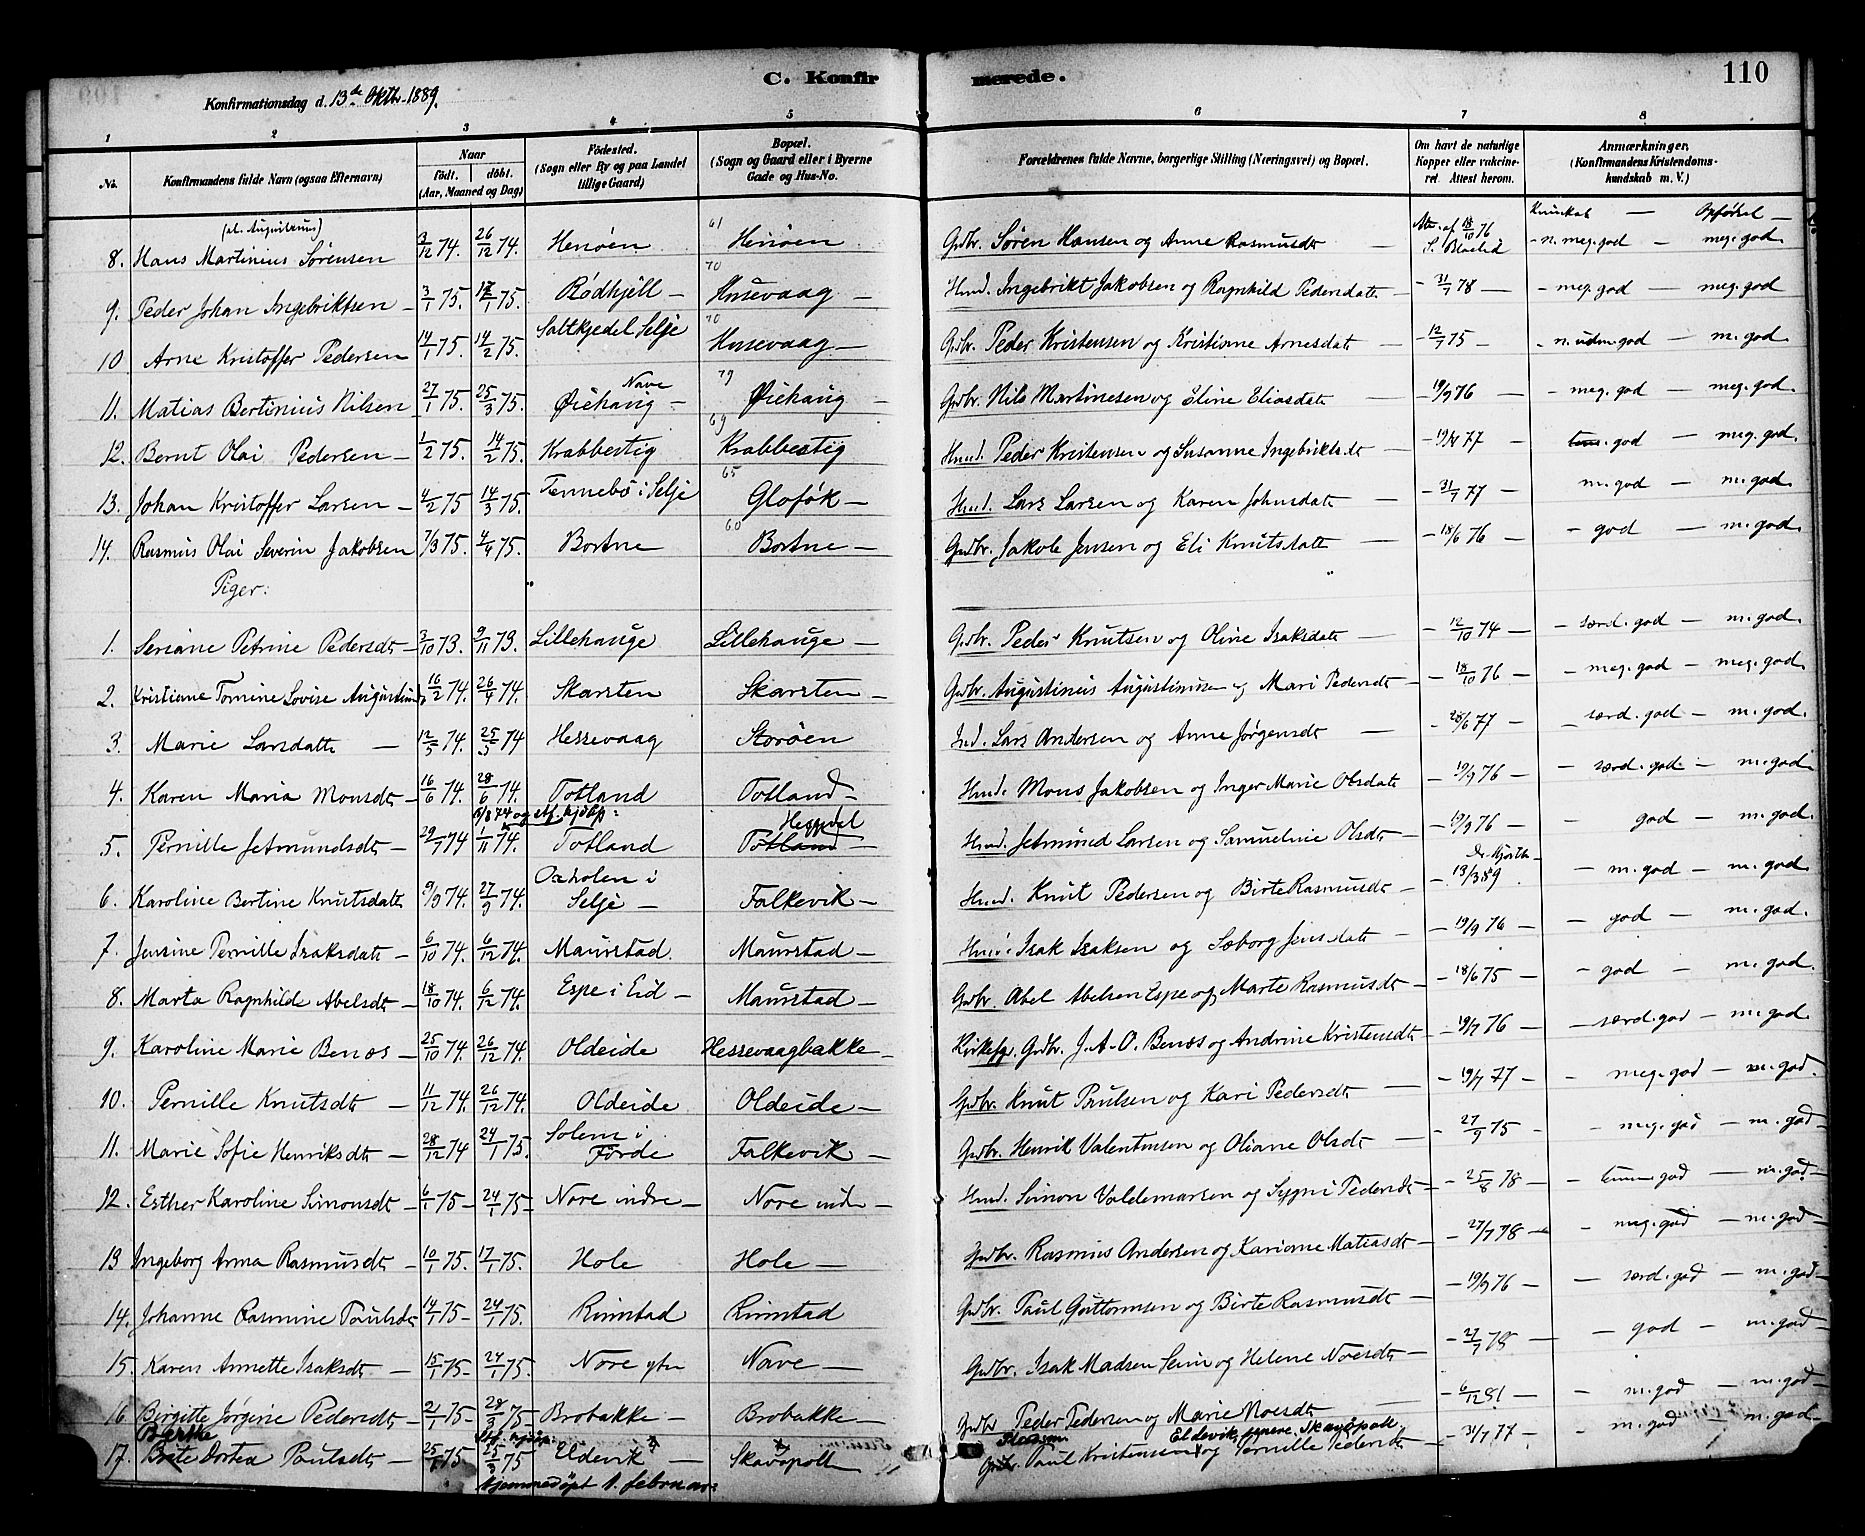 C. Konfirmerede.
110
Konfirmationsdag d. 13de Oktbr. 1889.
1 2 3 4 5 6 7 8
No. Konfirmandens fulde Navn (ogsaa Efternavn) Naar født. døbt. (Aar, Maaned og Dag) Fødested. (Sogn eller By og paa Landet tillige Gaard) Bopæl. (Sogn og Gaard eller i Byerne Gade og Hus-No. Forældrenes fulde Navne, borgerlige Stilling (Næringsvei) og Bopæl. Om havt de naturlige Kopper eller vakcineret. Attest herom. Anmærkninger. (Konfirmandens Kristendomskundskab m. V.)
Kundskab — Opførsel —
8. Hans Martinius Sørensen 3/12 74. 26/12 74. Henøen 61 Henøen Grdbr. Søren Hansen og Anne Rasmusdt — 76 n. meg. god — meg. god
9. Peder Johan Ingebriktsen — 3/1 75. 75. Rødkjell — 70 Husevaag — Husd. Ingebrikt Jakobsen og Ragnhild Pedersdatt — 31/7 78 — meg. god — meg. god
10 Arne Kristoffer Pedersen 14/1 75. 14/2 75. Saltkjedel Selje 70 Husevaag — Grdbr. Peder Kristensen og Kristiane Arnesdatt — 12/7 75 — n. uden god — m. god
11. Matias Bertinius Nilsen 27/1 75. 25/3 75. Nave Øiehaug — 79 Øiehaug — Grdbr. Nils Martinesen og Eline Eliasdatt — 19/9 76 — meg. god — meg. god.
12. Bernt Olai Pedersen — 1/2 75. 14/2 75. Krabbestig 69 Krabbestig Husd. Peder Kristensen og Susanne Ingebriktsdt — 77 — god — meg. god.
13. Johan Kristoffer Larsen — 4/2 75 14/3 75. Tennebø i Selje 65 Gloføk — Husd. Lars Larsen og Karen Johnsdatt — 31/7 77 — m. god — m. god
14. Rasmus Olai Severin Jakobsen 7/3 75. 4/4 75. Bortne 60 Bortne — Grdbr. Jakob Jensen og Eli Knutsdatt — 18/6 76 — god — m. god.
Piger:
1. Seriane Petrine Pedersdt — 3/10 73. 9/11 73. Lillehauge Lillehauge — Grdbr. Peder Knutsen og Oline Isaksdatt — 12/10 74 — særd. god — m. god.
2. Kristiane Tomine Lovise Augustinusdt 16/2 74. 26/4 74. Skarsten Skarsten — Grdbr. Augustinus Augustinusen og Mari Pedersdt — 18/10 76 — meg. god — meg. god.
3. Marie Larsdatt — 12/5 74. 25/5 74 Hessevaag Storøen Ind. Lars Andersen og Anne Jørgensdt — 28/6 77 — særd. god — m. god.
4. Karen Maria Monsdt — 16/6 74. 28/6 74. Totland Totland — Husd. Mons Jakobsen og Inger Marie Olsdatt — 19/9 76 — særd. god — m. god.
5. Pernille Jetmundsdt — 29/7 74 1/11 74. Totland Totland Hessvel — Husd. Jetmund Larsen og Samueline Olsdt — 19/9 76 — god — m. god.
6. Karoline Bertine Knutsdatt 9/9 74. 27/9 74. Oxholen i Selje — Falkevik — Husd. Knut Pedersen og Birte Rasmusdt — 13/3 89. — m. god — m. god.
7. Jensine Pernille Isaksdatt — 6/10 74. 6/12 74. Maurstad. Maurstad — Husd. Isak Isaksen og Søborg Jensdatt — 19/9 76 — god — m. god.
8. Marta Ragnhilde Abelsdt — 18/10 74. 6/12 74. Espe i Eid — Maurstad — Grdbr. Abel Abelsen Espe og Marte Rasmusdt — 18/6 75 — god — m. god.
9. Karoline Marie Benæs — 25/10 74. 26/12 74. Oldeide Hessevaagbakke — Kirkesgr. Grdbr. J. A. O. Benæs og Andrine Kristensdt — 19/7 76 — særd. god — m. god
10. Pernille Knutsdt — 11/12 74. 26/12 74. Oldeide Oldeide — Grdbr. Knut Paulsen og Kari Pedersdt — 19/7 77 — meg. god — m. god.
11. Marie Sofie Henriksdt — 28/12 74 24/1 75. Solem i Førde Falkevik — Grdbr. Henrik Valentinsen og Oliane Olsdt — 27/9 75 — meg. god — m. god —
12. Esther Karoline Simonsdt — 6/1 75 — 24/1 75 — Nore indre — Nore ind — Husd. Simon Valdemarsen og Sygni Pedersdt — 25/8 78 — god — m. god —
13 Ingeborg Anna Rasmusdt — 10/1 75. 17/1 75. Hole Hole — Grdbr. Rasmus Andersen og Kariane Matiasdt — 27/7 78 — meg. god — m. god —
14. Johanne Rasmine Paulsdt 14/1 75 — 24/1 75. Rimstad Rimstad Grdbr. Paul Guttormsen og Birte Rasmusdt — 19/9 76 — særd. god — m. god —
15. Karen Annette Isaksdt — 15/1 75 — 24/1 75. Nore ytre Nave — Grdbr. Isak Madsen Seim og Helene Noesdt — 27/7 78 — god — m. god —
16. Birgitte Jørgine Pedersdt — 21/1 75 — 28/3 75 — Brobakke — Brobakke — Grdbr Peder Pedersen og Marie Moesdt — 6/12 81 — m. god — m. god —
17. Brite Dortea Paulsdt — 25/1 75 25/3 75 Eldevik — Skavøpoll Grdbr. Paul Kristensen og Pernille Pedersdt — 31/7 77 — m. god — m. god —
Eldevik, senere Skavøpoll.
hjemmedøpt 1. februar